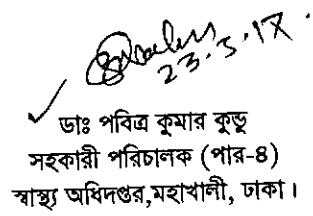 23.3.17.
ডাঃ পবিত্র কুমার কুন্ডু
সহকারী পরিচালক (পার-৪)
স্বাস্থ্য অধিদপ্তর,মহাখালী, ঢাকা।